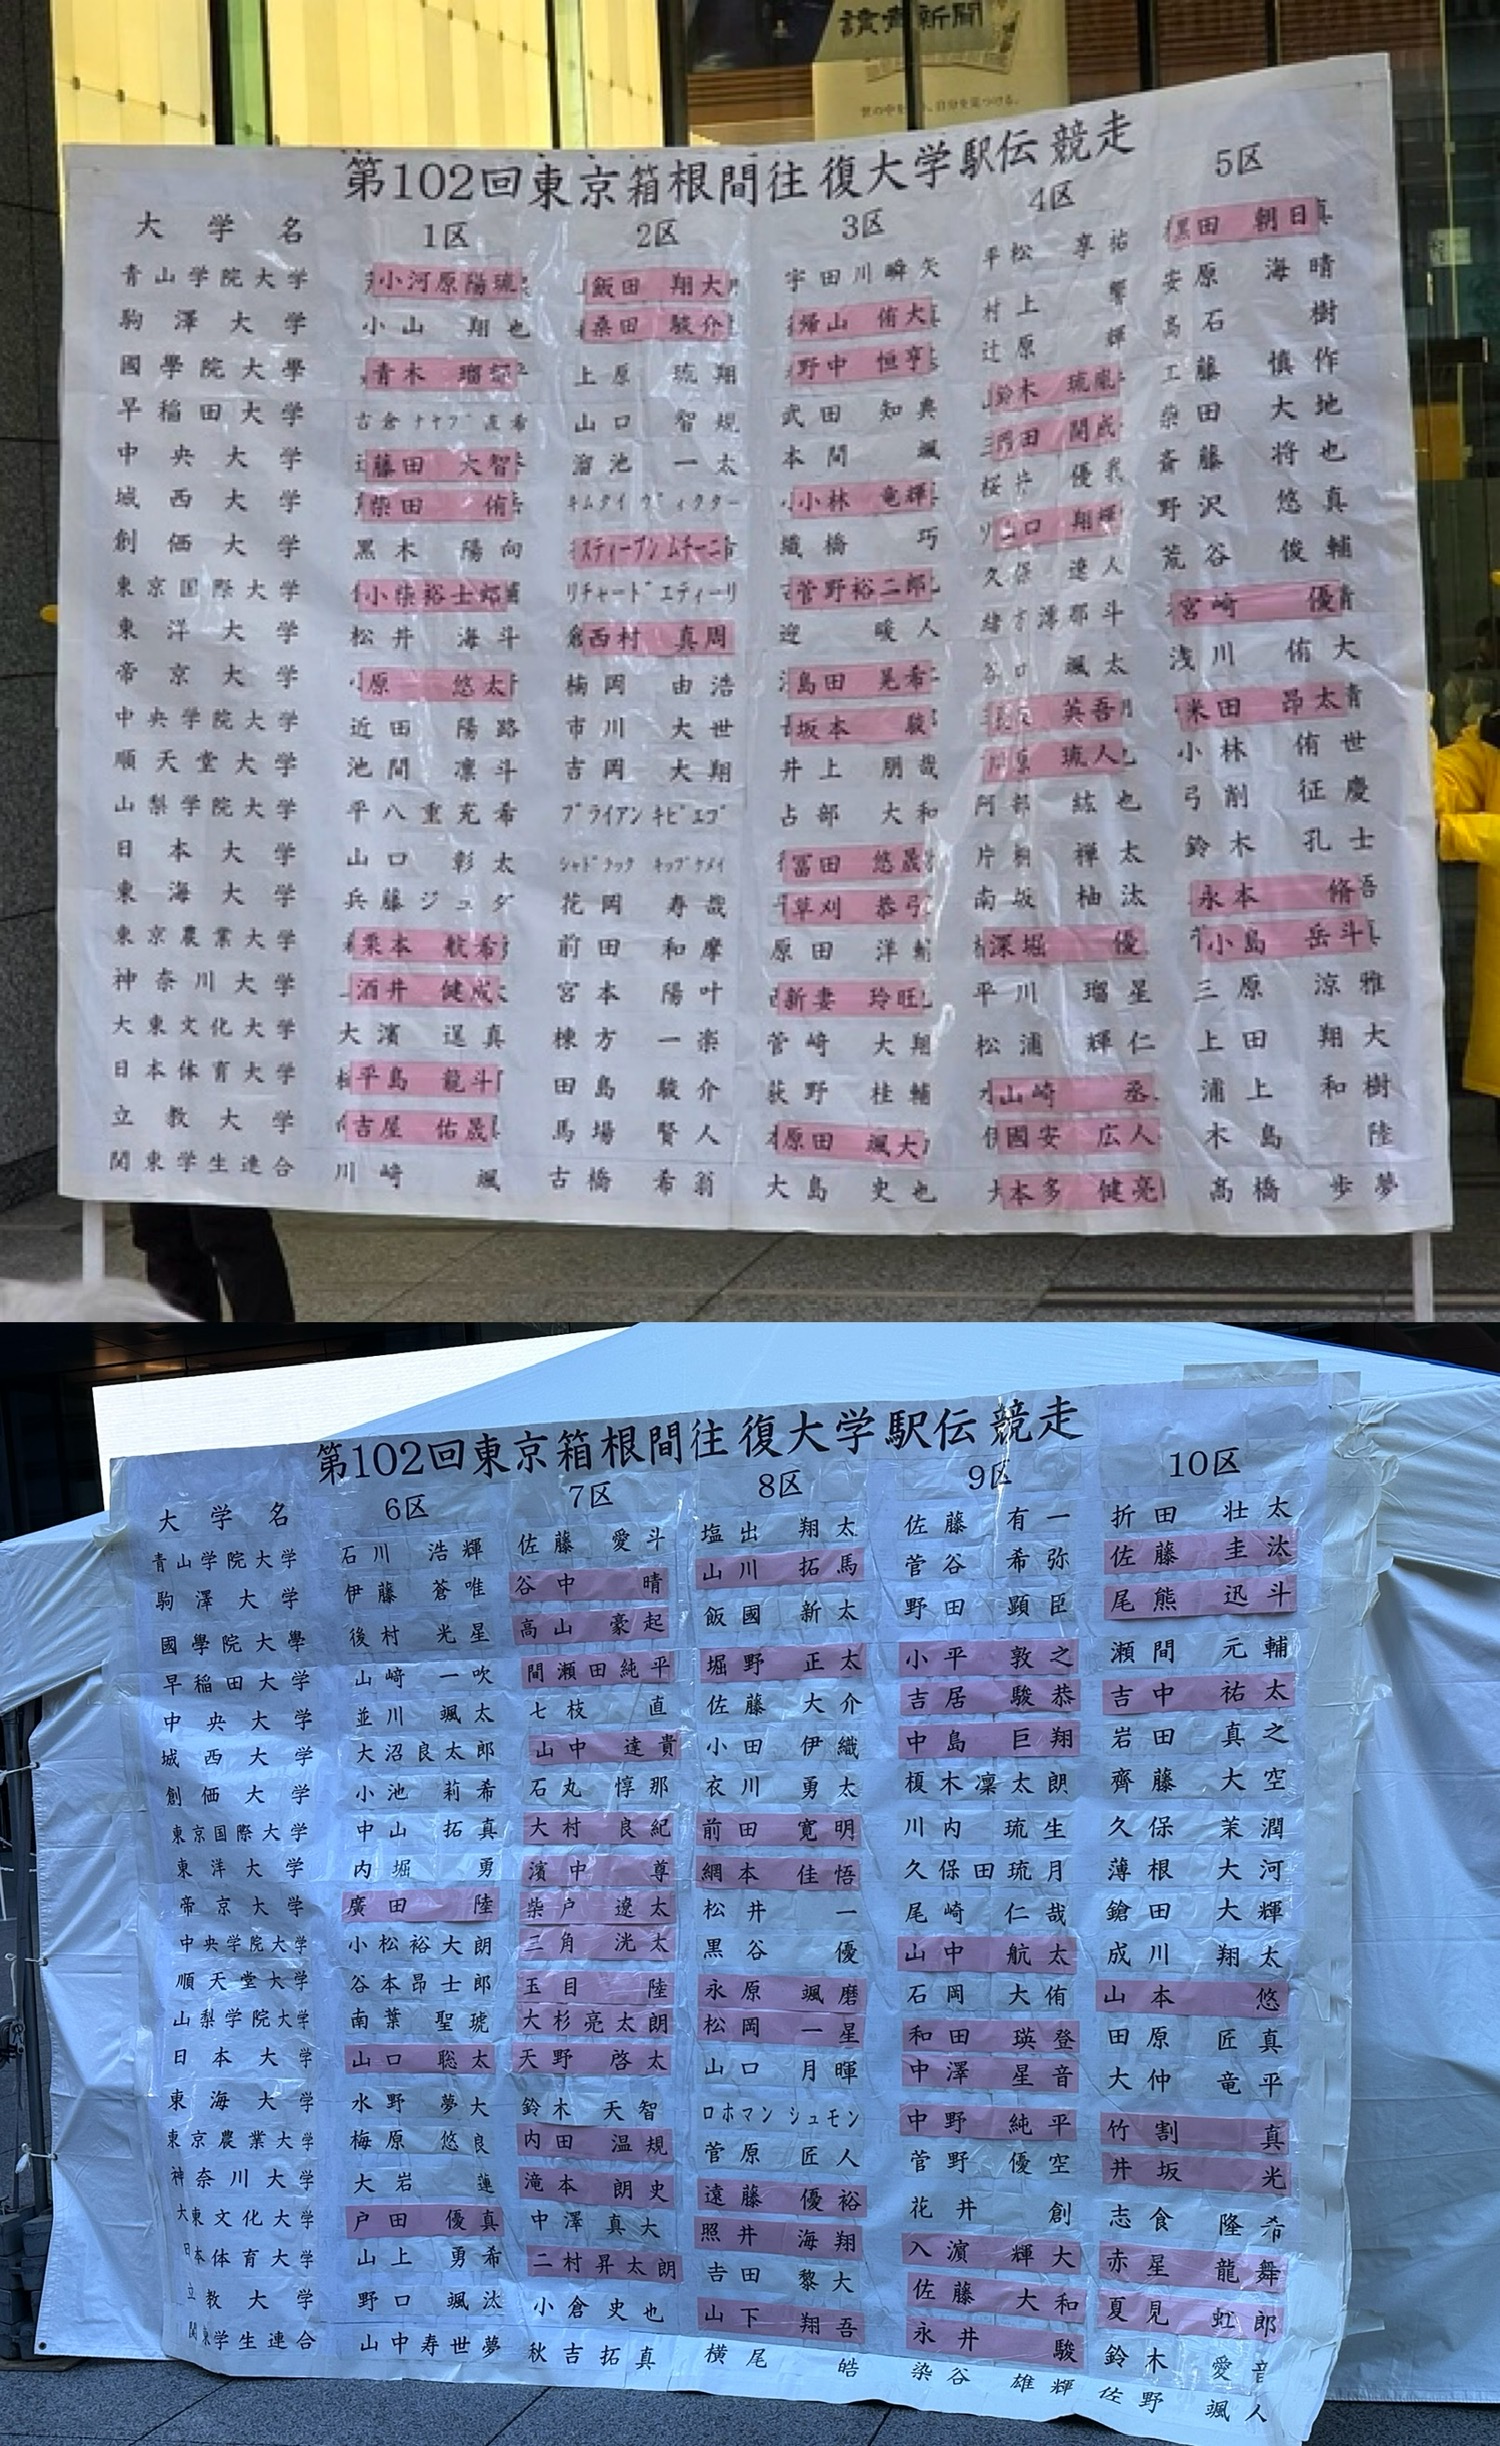 読売新聞
第102回東京箱根間往復大学駅伝競走
大学名 1区 2区 3区 4区 5区
青山学院大学 小河原陽琉 飯田 翔大 宇田川瞬矢 平松 享祐 黒田 朝日
駒澤大学 小山 翔也 桑田 駿介 帰山 侑大 村上 響 安原 海晴
國學院大學 青木 瑠郁 上原 琉翔 野中 恒亨 辻原 輝 高石 樹
早稲田大学 吉倉ナヤブ直希 山口 智規 武田 知典 鈴木 琉胤 工藤 慎作
中央大学 藤田 大智 溜池 一太 本間 颯 岡田 開成 柴田 大地
城西大学 柴田 侑 キムタイ ヴィクター 小林 竜輝 桜井 優我 斎藤 将也
創価大学 黒木 陽向 スティーブン ムチーニ 織橋 巧 山口 翔輝 野沢 悠真
東京国際大学 小柴裕士郎 リチャード エティーリ 菅野裕二郎 久保 遼人 荒谷 俊輔
東洋大学 松井 海斗 西村 真周 迎 暖人 緒方澪那斗 宮崎 優
帝京大学 原 悠太 楠岡 由浩 島田 晃希 谷口 颯太 浅川 侑大
中央学院大学 近田 陽路 市川 大世 坂本 駿 英吾 米田 昂太
順天堂大学 池間 凛斗 吉岡 大翔 井上 朋哉 川原 琉人 小林 侑世
山梨学院大学 平八重充希 ブライアン キピエゴ 占部 大和 阿部 紘也 弓削 征慶
日本大学 山口 彰太 シャドラック キップケメイ 冨田 悠晟 片桐 禅太 鈴木 孔士
東海大学 兵藤ジュダ 花岡 寿哉 草刈 恭弓 南坂 柚汰 永本 脩
東京農業大学 栗本 航希 前田 和摩 原田 洋輔 深堀 優 小島 岳斗
神奈川大学 酒井 健成 宮本 陽叶 新妻 玲旺 平川 瑠星 三原 涼雅
大東文化大学 大濱 逞真 棟方 一楽 菅崎 大翔 松浦 輝仁 上田 翔大
日本体育大学 平島 龍斗 田島 駿介 荻野 桂輔 山崎 丞 浦上 和樹
立教大学 吉屋 佑晟 馬場 賢人 原田 颯大 國安 広人 木島 陸
関東学生連合 川崎 颯 古橋 希翁 大島 史也 本多 健亮 高橋 歩夢
第102回東京箱根間往復大学駅伝競走
大学名 6区 7区 8区 9区 10区
青山学院大学 石川 浩輝 佐藤 愛斗 塩出 翔太 佐藤 有一 折田 壮太
駒澤大学 伊藤 蒼唯 谷中 晴 山川 拓馬 菅谷 希弥 佐藤 圭汰
國學院大學 後村 光星 高山 豪起 飯國 新太 野田 顕臣 尾熊 迅斗
早稲田大学 山﨑 一吹 間瀬田純平 堀野 正太 小平 敦之 瀬間 元輔
中央大学 並川 颯太 七枝 直 佐藤 大介 吉居 駿恭 吉中 祐太
城西大学 大沼良太郎 山中 達貴 小田 伊織 中島 巨翔 岩田 真之
創価大学 小池 莉希 石丸 惇那 衣川 勇太 榎木凜太朗 齊藤 大空
東京国際大学 中山 拓真 大村 良紀 前田 寛明 川内 琉生 久保 茉潤
東洋大学 内堀 勇 濱中 尊 網本 佳悟 久保田琉月 薄根 大河
帝京大学 廣田 陸 柴戸 遼太 松井 一 尾崎 仁哉 鎗田 大輝
中央学院大学 小松裕大朗 三角 洸太 黒谷 優 山中 航太 成川 翔太
順天堂大学 谷本昂士郎 玉目 陸 永原 颯磨 石岡 大侑 山本 悠
山梨学院大学 南葉 聖琥 大杉亮太朗 松岡 一星 和田 瑛登 田原 匠真
日本大学 山口 聡太 天野 啓太 山口 月暉 中澤 星音 大仲 竜平
東海大学 水野 夢大 鈴木 天智 ロホマン シュモン 中野 純平 竹割 真
東京農業大学 梅原 悠良 内田 温規 菅原 匠人 菅野 優空 井坂 光
神奈川大学 大岩 蓮 滝本 朗史 遠藤 優裕 花井 創 志食 隆希
大東文化大学 戸田 優真 中澤 真大 照井 海翔 入濵 輝大 赤星 龍舞
日本体育大学 山上 勇希 二村昇太朗 吉田 黎大 佐藤 大和 夏見 虹郎
立教大学 野口 颯汰 小倉 史也 山下 翔吾 永井 駿 鈴木 愛音
関東学生連合 山中寿世夢 秋吉 拓真 横尾 皓 染谷 雄輝 佐野 颯人